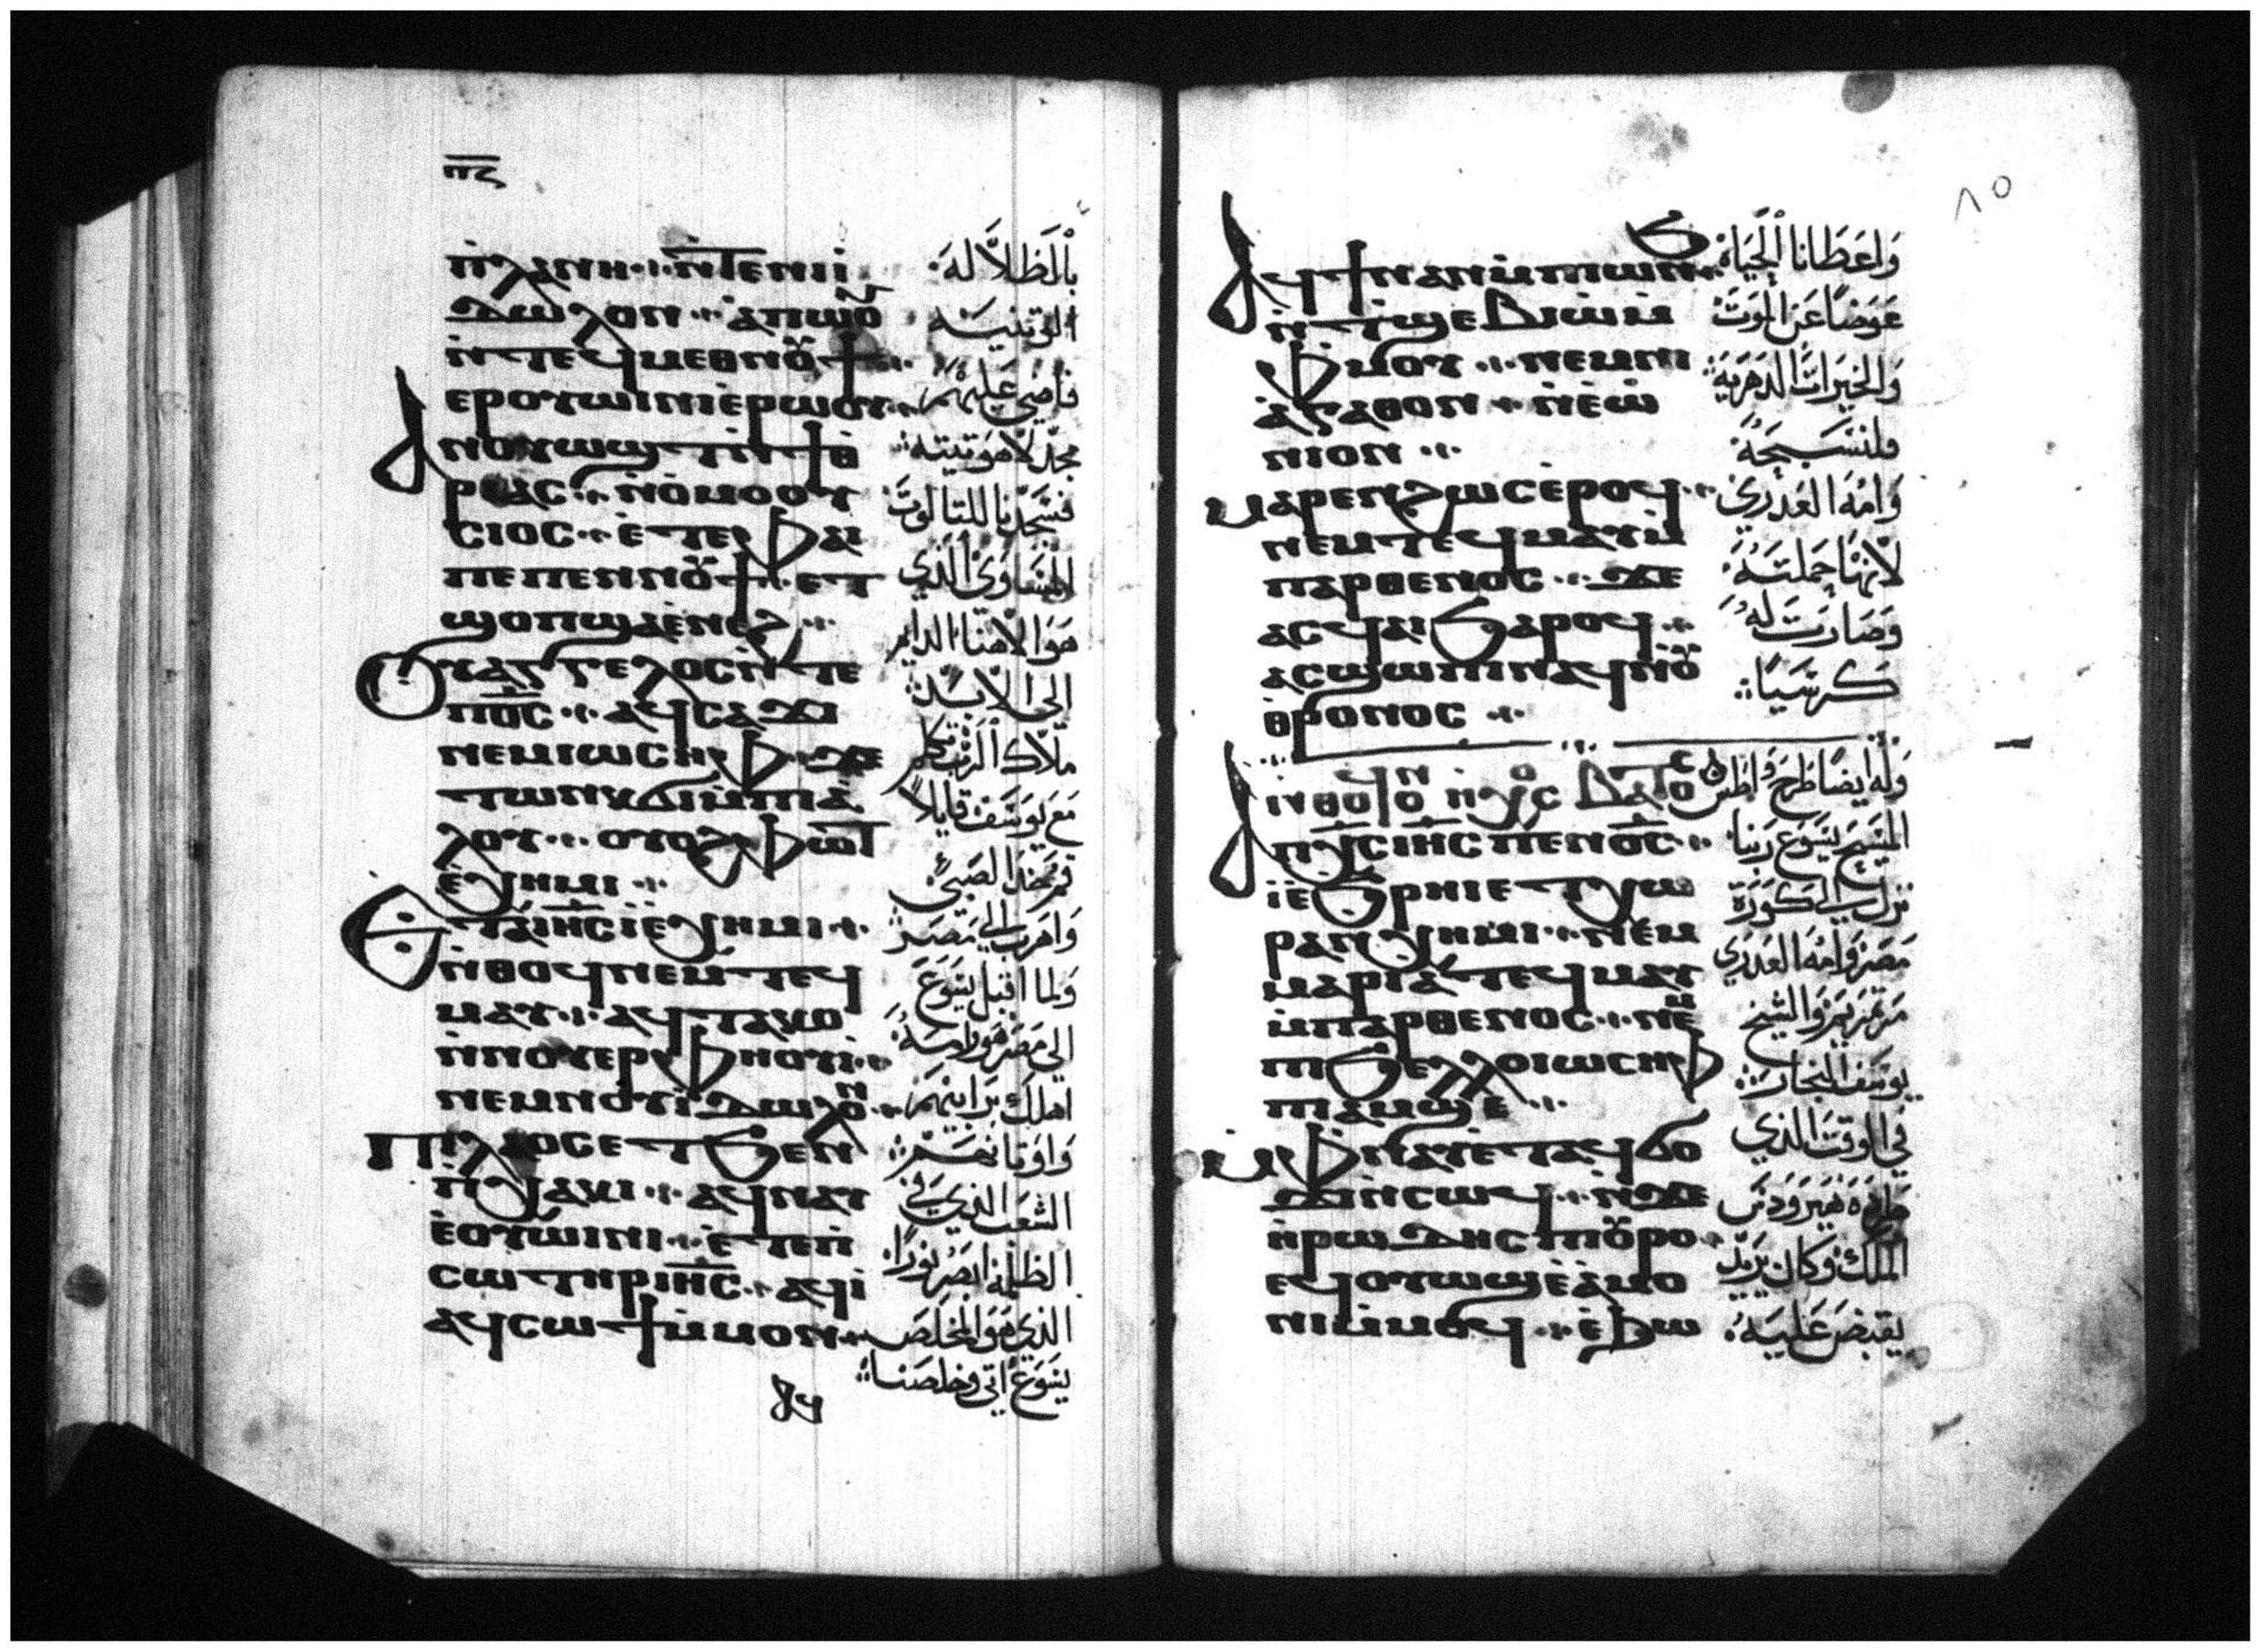 ⲡ̅ⲋ̅
ⲡ̀ⲗⲁⲛⲏ ⲛ̀ⲧⲉⲛⲓⲓ̀
ⲇⲱⲗⲟⲛ ⲁ̀ⲡⲱⲟⲩ
ⲛ̀ⲧⲉϥⲙⲉⲑⲛⲟⲩϯ
ⲉⲣⲟⲩⲱⲓⲛⲓⲉ̀ⲣⲱⲟⲩ
ⲁⲛⲟⲩⲱϣⲧⲛ̀ϯⲑ̀
ⲣⲓⲁⲥ ⲛ̀ⲟ̀ⲙⲟⲟⲩ
ⲥⲓⲟⲥ ⲉ̀ⲧⲉⲫⲁⲓ
ⲡⲉⲡⲉⲛⲛⲟⲩϯ ⲉⲧ
ϣⲟⲡϣⲁⲉ̀ⲛⲉϩ
ⲟⲩⲁⲅⲅⲉⲗⲟⲥⲛ̀ⲧⲉ
ⲡⲟ̅ⲥ̅ ⲁϥⲥⲁϫⲓ
ⲛⲉⲙⲓⲱⲥⲏⲫ ϫⲉ
ⲧⲱⲛⲕϭⲓⲙ̀ⲡⲓⲁ̀
ⲗⲟⲩ ⲟⲩⲟϩ ⲫⲱⲧ
ⲉ̀ⲭⲏⲙⲓ
ⲉⲧⲁⲓ̅ⲏ̅ⲥ̅ⲓ̀ⲉ̀ⲭⲏⲙⲓ
ⲛ̀ⲑⲟϥⲛⲉⲙⲧⲉϥ
ⲙⲁⲩ ⲁϥⲧⲁⲕⲟ
ⲛ̀ⲛⲟⲩⲉⲣⲫⲏⲟⲩⲓ̀
ⲛⲉⲙⲛⲟⲩⲓ̀ⲇⲱⲗⲟⲛ
ⲡⲓⲗⲁⲟⲥⲉⲧϧⲉⲛ
ⲡ̀ⲭⲁⲕⲓ ⲁϥⲛⲁⲩ
ⲉ̀ⲟⲩⲱⲓⲛⲓ ⲉ̀ⲧⲉⲡ̀
ⲥⲱⲧⲏⲣⲓ̅ⲏ̅ⲥ̅ ⲁϥⲓ̀
ⲁϥⲥⲱϯⲙ̀ⲙⲟⲛ
ⲁϥ
بالظلاله
التي
فاضي عليهم
مجد لاهوتيته
فسجدنا للتالوت
المساوي الذي
هو الاهنا الدايم
الي الابد
ملاك الرب تكلم
مع يوسف قايلا
قم خذ الصبي
واهرب الي مصر
ولما اقبل يسوع
الي مصر هو وامه
اهلك برابيهم
واوتانهم
الشعب الذي في
الظلمة ابصر نورا
الذي هو المخلص
يسوع اتي وخلصنا
٨٥
ⲁϥϯⲛⲁⲛⲙ̀ⲡⲱⲛϧ
ⲛ̀ⲧ̀ϣⲉⲃⲓⲱ̀ⲙ̀
ⲫ̀ⲙⲟⲩ ⲛⲉⲙⲛⲓ
ⲁ̀ⲅⲁⲑⲟⲛ ⲛ̀ⲉ̀ⲱ̀
ⲛⲓⲟⲛ
ⲙⲁⲣⲉⲛϩⲱⲥⲉ̀ⲣⲟϥ
ⲛⲉⲙⲧⲉϥⲙⲁⲩⲙ̀
ⲡⲁⲣⲑⲉⲛⲟⲥ ϫⲉ
ⲁⲥϥⲁⲓϧⲁⲣⲟϥ
ⲁⲥϣⲱⲡⲓⲛⲁϥⲛⲟⲩ
ⲑ̀ⲣⲟⲛⲟⲥ
ⲁⲡ̀ⲭ̅ⲥ̅ⲓ̅ⲏ̅ⲥ̅ⲡⲉⲛⲟ̅ⲥ̅
ⲓ̀ⲉ̀ϧ̀ⲣⲏⲓⲉ̀ⲧⲭⲱ
ⲣⲁⲛⲭⲏⲙⲓ ⲛⲉⲙ
ⲙⲁⲣⲓⲁⲧⲉϥⲙⲁⲩ
ⲙ̀ⲡⲁⲣⲑⲉⲛⲟⲥ ⲛⲉⲙ
ⲡⲓϧⲉⲗⲗⲟⲓⲱⲥⲏⲫ
ⲡⲓⲁⲙϣⲉ
ⲙ̀ⲫⲛⲁⲩⲉ̀ⲧⲁϥϭⲟ
ϫⲓⲛ̀ⲥⲱϥ ⲛ̀ϫⲉ
ⲏ̀ⲣⲱⲇⲏⲥⲡⲟⲩⲣⲟ
ⲉϥⲟⲩⲱϣⲉ̀ⲁ̀ⲙⲟ
ⲛⲓⲙ̀ⲙⲟϥ ⲉ̀ⲃⲱ
واعطانا الحياة
عوضا عن الموت
والخيرات الدهرية
فلنسبحة
وامه العدري
لانها حملته
وصارت له
كرسيا
وله ايضا طرح واطس
المسيح يسوع ربنا
نزل الي كورة
مصر وامه العدري
مرتمريم والشيخ
يوسف النجار
في الوقت الذي
طرده هيرودس
الملك وكان يريد
يقبض عليه